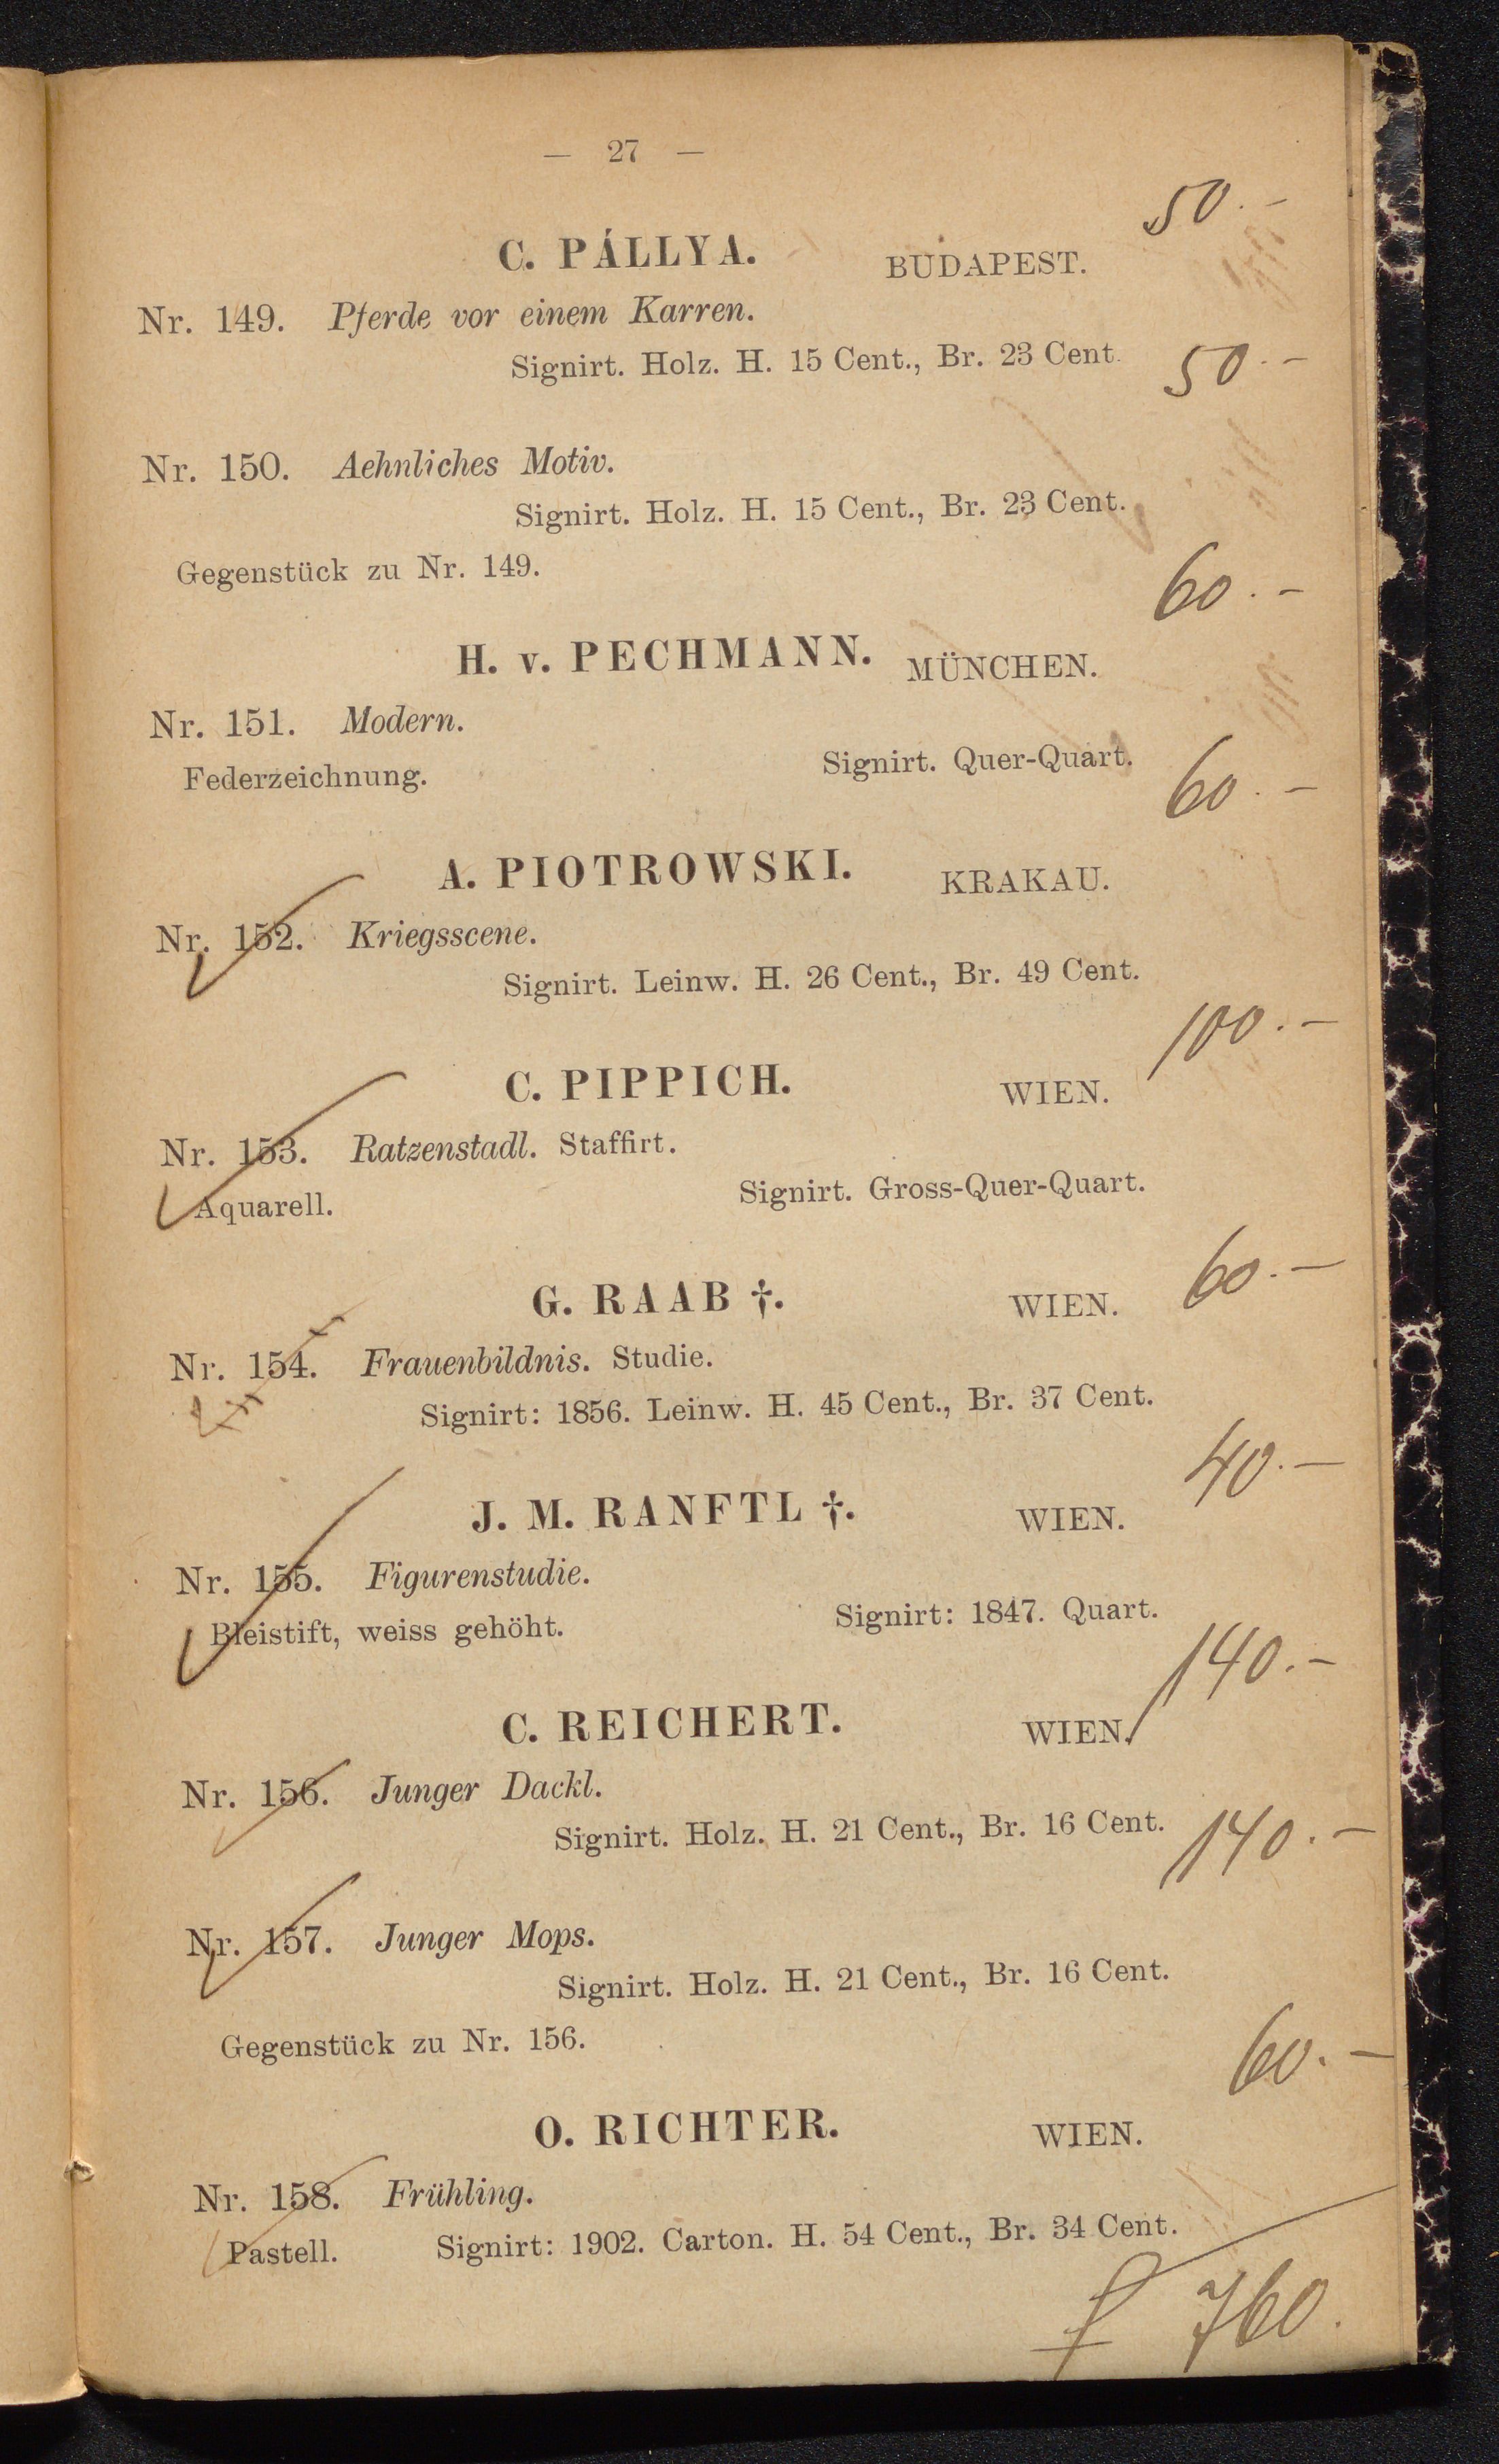 — 27 —
50.-
C. PÁLLYA. BUDAPEST.
Nr. 149. Pferde vor einem Karren.
Signirt. Holz. H. 15 Cent., Br. 23 Cent.
50.-
Nr. 150. Aehnliches Motiv.
Signirt. Holz. H. 15 Cent., Br. 23 Cent.
Gegenstück zu Nr. 149.
60.-
H. v. PECHMANN. MÜNCHEN.
Nr. 151. Modern.
Federzeichnung. Signirt. Quer-Quart.
60.-
A. PIOTROWSKI. KRAKAU.
Nr. 152. Kriegsscene.
Signirt. Leinw. H. 26 Cent., Br. 49 Cent.
100.-
C. PIPPICH. WIEN.
Nr. 153. Ratzenstadl. Staffirt.
Aquarell. Signirt. Gross-Quer-Quart.
60.-
G. RAAB †. WIEN.
Nr. 154. Frauenbildnis. Studie.
Signirt: 1856. Leinw. H. 45 Cent., Br. 37 Cent.
40.-
J. M. RANFTL †. WIEN.
Nr. 155. Figurenstudie.
Bleistift, weiss gehöht. Signirt: 1847. Quart.
140.-
C. REICHERT. WIEN.
Nr. 156. Junger Dackl.
Signirt. Holz. H. 21 Cent., Br. 16 Cent.
140.-
Nr. 157. Junger Mops.
Signirt. Holz. H. 21 Cent., Br. 16 Cent.
Gegenstück zu Nr. 156.
60.-
O. RICHTER. WIEN.
Nr. 158. Frühling.
Pastell. Signirt: 1902. Carton. H. 54 Cent., Br. 34 Cent.
f 760.